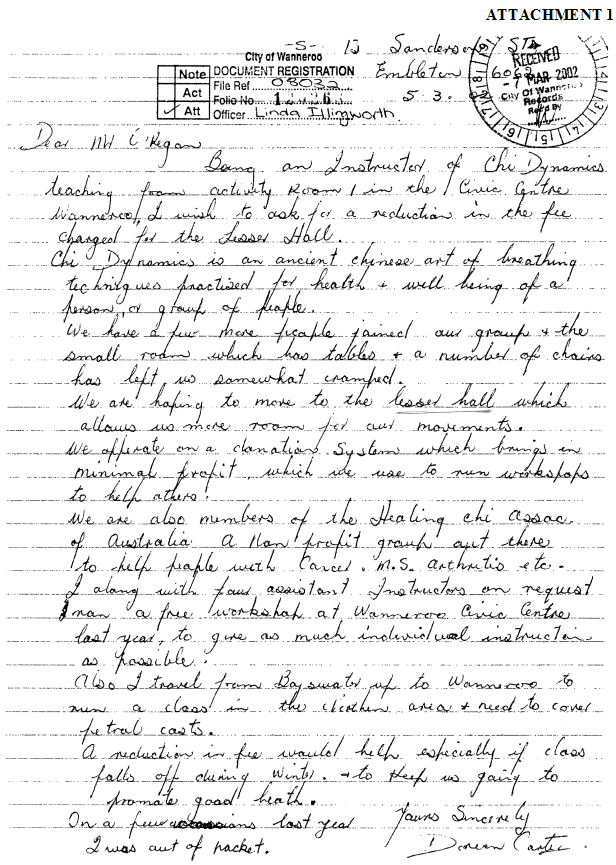 ATTACHMENT 1
-5- 13 Sanderson St
City of Wanneroo
DOCUMENT REGISTRATION
Note
Act
Att
File Ref 08032
Folio No
Officer Linda Illingworth
Embleton 6062
5.3.02
RECEIVED
-7 MAR 2002
City Of Wanneroo
Records
Rec'd By
Dear Mr O'Regan
Being an Instructor of Chi Dynamics
teaching from activity Room 1 in the Civic Centre
Wanneroo, I wish to ask for a reduction in the fee
charged for the Lesser Hall.
Chi Dynamics is an ancient chinese art of breathing
techniques practised for health + well being of a
person, or group of people.
We have a few more people joined our group + the
small room which has tables + a number of chairs
has left us somewhat cramped.
We are hoping to move to the lesser hall which
allows us more room for our movements.
We opperate on a donation System which brings in
minimal profit, which we use to run workshops
to help others!
We are also members of the Healing chi assoc.
of Australia. A Non profit group out there
to help people with Cancer. M.S. Arthritis etc.
I along with four assistant Instructors on request
ran a free workshop at Wanneroo Civic Centre
last year, to give as much individual instruction
as possible.
Also I travel from Bayswater up to Wanneroo to
run a class in the northern area + need to cover
petrol costs.
A reduction in fee would help especially if class
falls off during Winter. + to keep us going to
promote good heath.
On a few occassions last year
I was out of pocket.
Yours Sincerely
Doreen Carter.